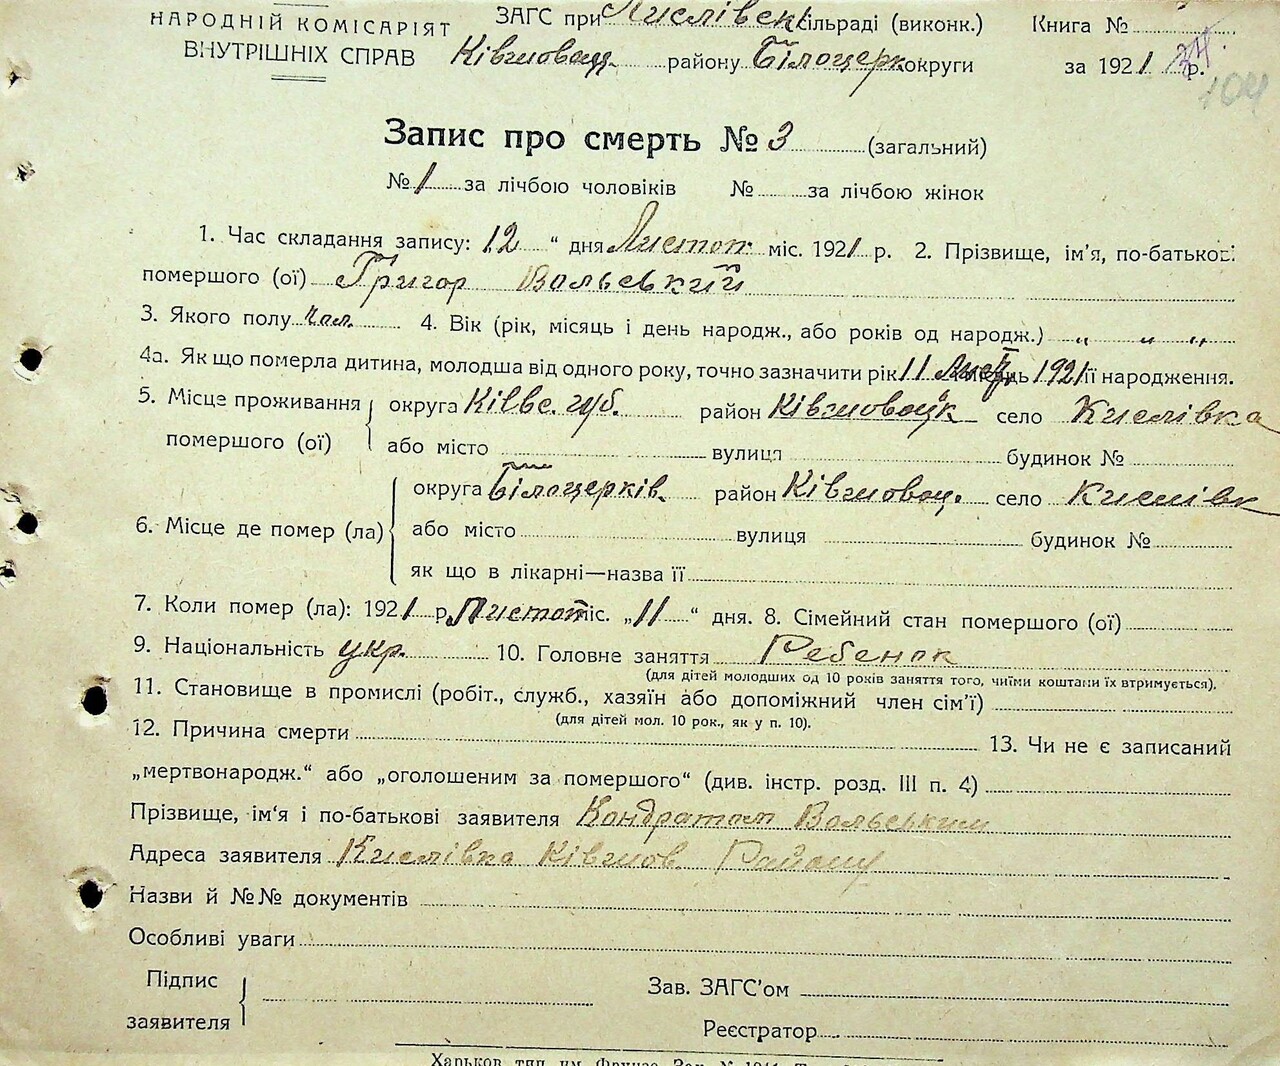 НАРОДНІЙ КОМІСАРІЯТ
ВНУТРІШНІХ СПРАВ
ЗАГС при Кислівськ сільраді (виконк.) Книга №
району Білоцерк округи за 1921 р. 34.
104
Запис про смерть № 3 (загальний)
№ 1 за лічбою чоловіків № за лічбою жінок
1. Час складання запису: 12 “ дня Листоп. міс. 1921 р. 2. Прізвище, ім'я, по-батькові
помершого (ої) Григор Вольський
3. Якого полу чол. 4. Вік (рік, місяць і день народж., або років од народж.) „ „ „
4а. Як що померла дитина, молодша від одного року, точно зазначити рік 11 Лист 1921 її народження.
5. Місце проживання округа Київс. губ. район село Кислівка
помершого (ої) або місто вулиця будинок №
округа Білоцерків. район село Кислівк
6. Місце де помер (ла) або місто вулиця будинок №
як що в лікарні—назва її
7. Коли помер (ла): 1921 р. Листоп міс. „11“ дня. 8. Сімейний стан помершого (ої)
9. Національність укр. 10. Головне заняття Ребенок
(для дітей молодших од 10 років заняття того, чиїми коштами їх втримується).
11. Становище в промислі (робіт., служб., хазяїн або допоміжний член сім'ї)
(для дітей мол. 10 рок., як у п. 10).
12. Причина смерти 13. Чи не є записаний
„мертвонародж.“ або „оголошеним за помершого“ (див. інстр. розд. III п. 4)
Прізвище, ім'я і по-батькові заявителя Кондратом Вольським
Адреса заявителя Кислівка Району
Назви й №№ документів
Особливі уваги
Підпис
заявителя
Зав. ЗАГС'ом
Реєстратор
Харьков тип. им. Фрунзе